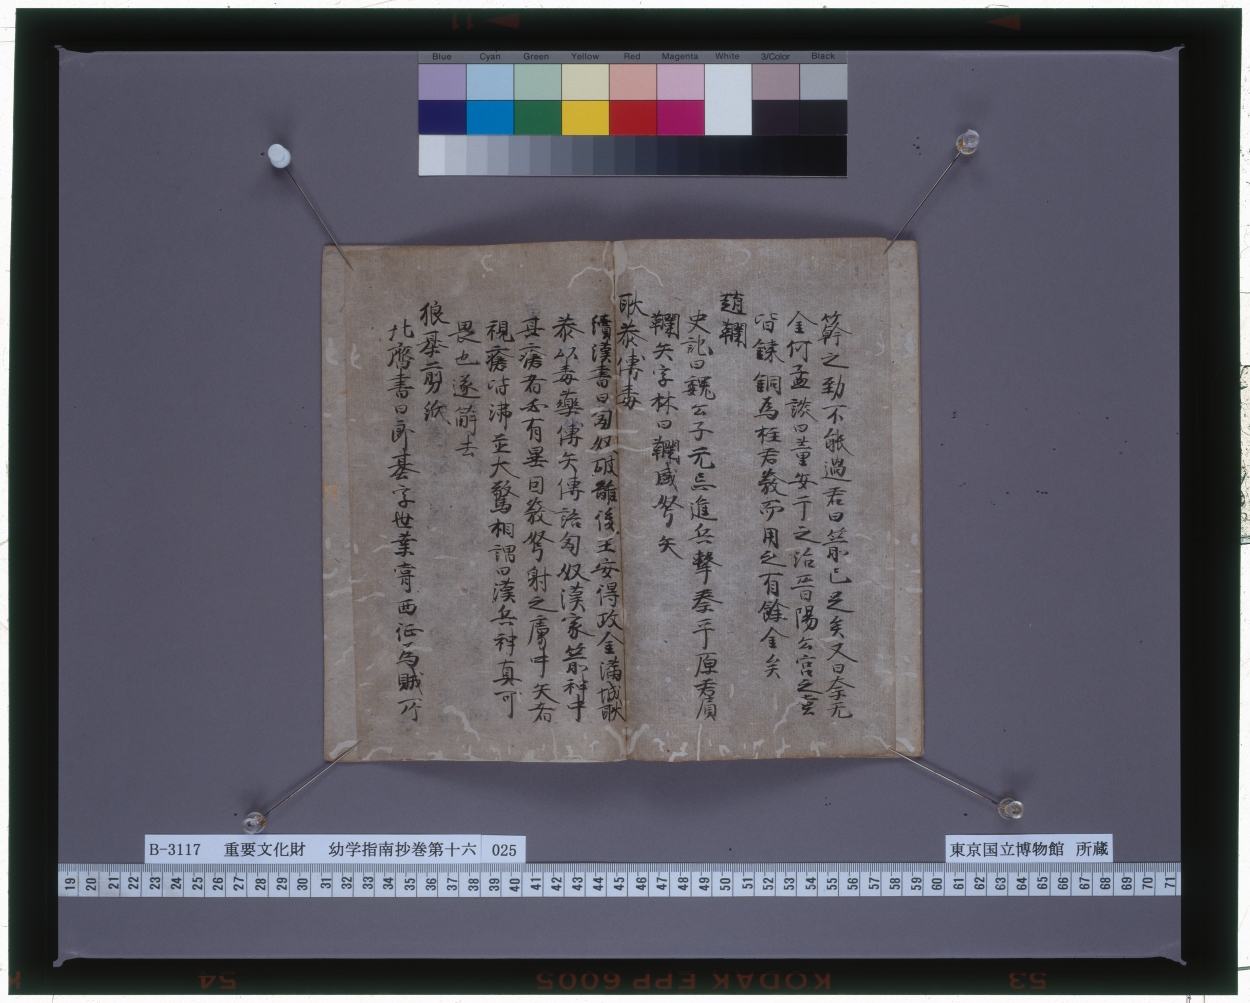 Blue Cyan Green Yellow Red Magenta White 3/Color Black
簳之勁不能過君曰箭已足矣又曰奈无
金何孟談曰董安于之治晋陽公宮之室
皆錬銅為柱君發而用之有餘金矣
趙韊
史記曰魏公子无忌進兵撃秦平原君負
韊矢字林曰韊盛弩矢
耿恭傅毒
續漢書曰匈奴破 後王安得攻金蒲城耿
恭以毒藥傅矢傳語匈奴漢家箭神中
其瘡者必有異因發弩射之虜中矢者
視瘡皆沸並大驚相謂曰漢兵神真可
畏也遂解去
狼基剪紙
北齊書曰郎基字世業 西征為賊所
B-3117 重要文化財 幼学指南抄巻第十六 025
東京国立博物館 所蔵
19 20 21 22 23 24 25 26 27 28 29 30 31 32 33 34 35 36 37 38 39 40 41 42 43 44 45 46 47 48 49 50 51 52 53 54 55 56 57 58 59 60 61 62 63 64 65 66 67 68 69 70 71
54 KODAK EPP 6005 53